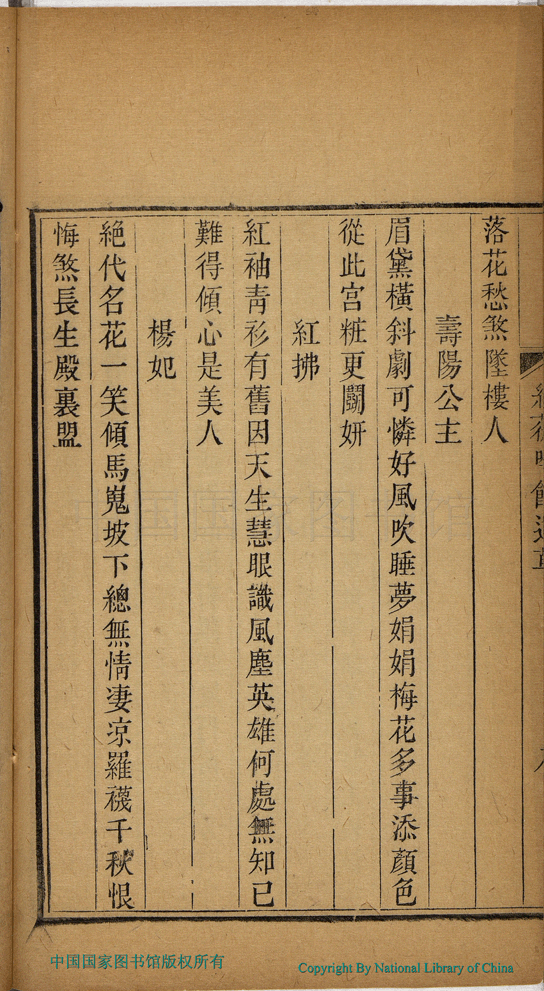 落花愁煞墜樓人
壽陽公主
眉黛橫斜劇可憐好風吹睡夢娟娟梅花多事添顏色
從此宮粧更鬬妍
紅拂
紅袖靑衫有舊因天生慧眼識風塵英雄何處無知己
難得傾心是美人
楊妃
絕代名花一笑傾馬嵬坡下總無情凄凉羅襪千秋恨
悔煞長生殿裏盟
中国国家图书馆版权所有
Copyright By National Library of China